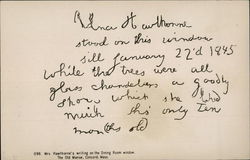 Una Hawthorne
stood on this window
sill January 22'd 1845
while the trees were all
glass chandeliers a goody
show which she liked
much tho' only ten
months old
Mrs. Hawthorne's writing on the Dining Room window.
The Old Manse, Concord, Mass.